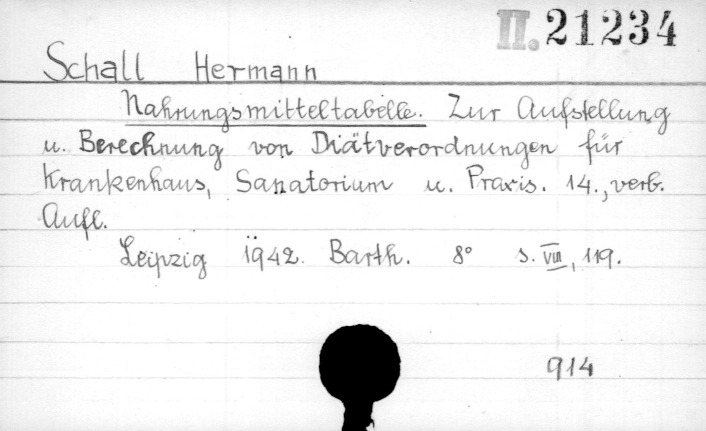 II. 21234
Schall Hermann
Nahrungsmitteltabelle. Zur Aufstellung
u. Berechnung von Diätverordnungen für
Krankenhaus, Sanatorium u. Praxis. 14., verb.
Aufl.
Leipzig 1942. Barth. 8° s. VIII, 119.
914